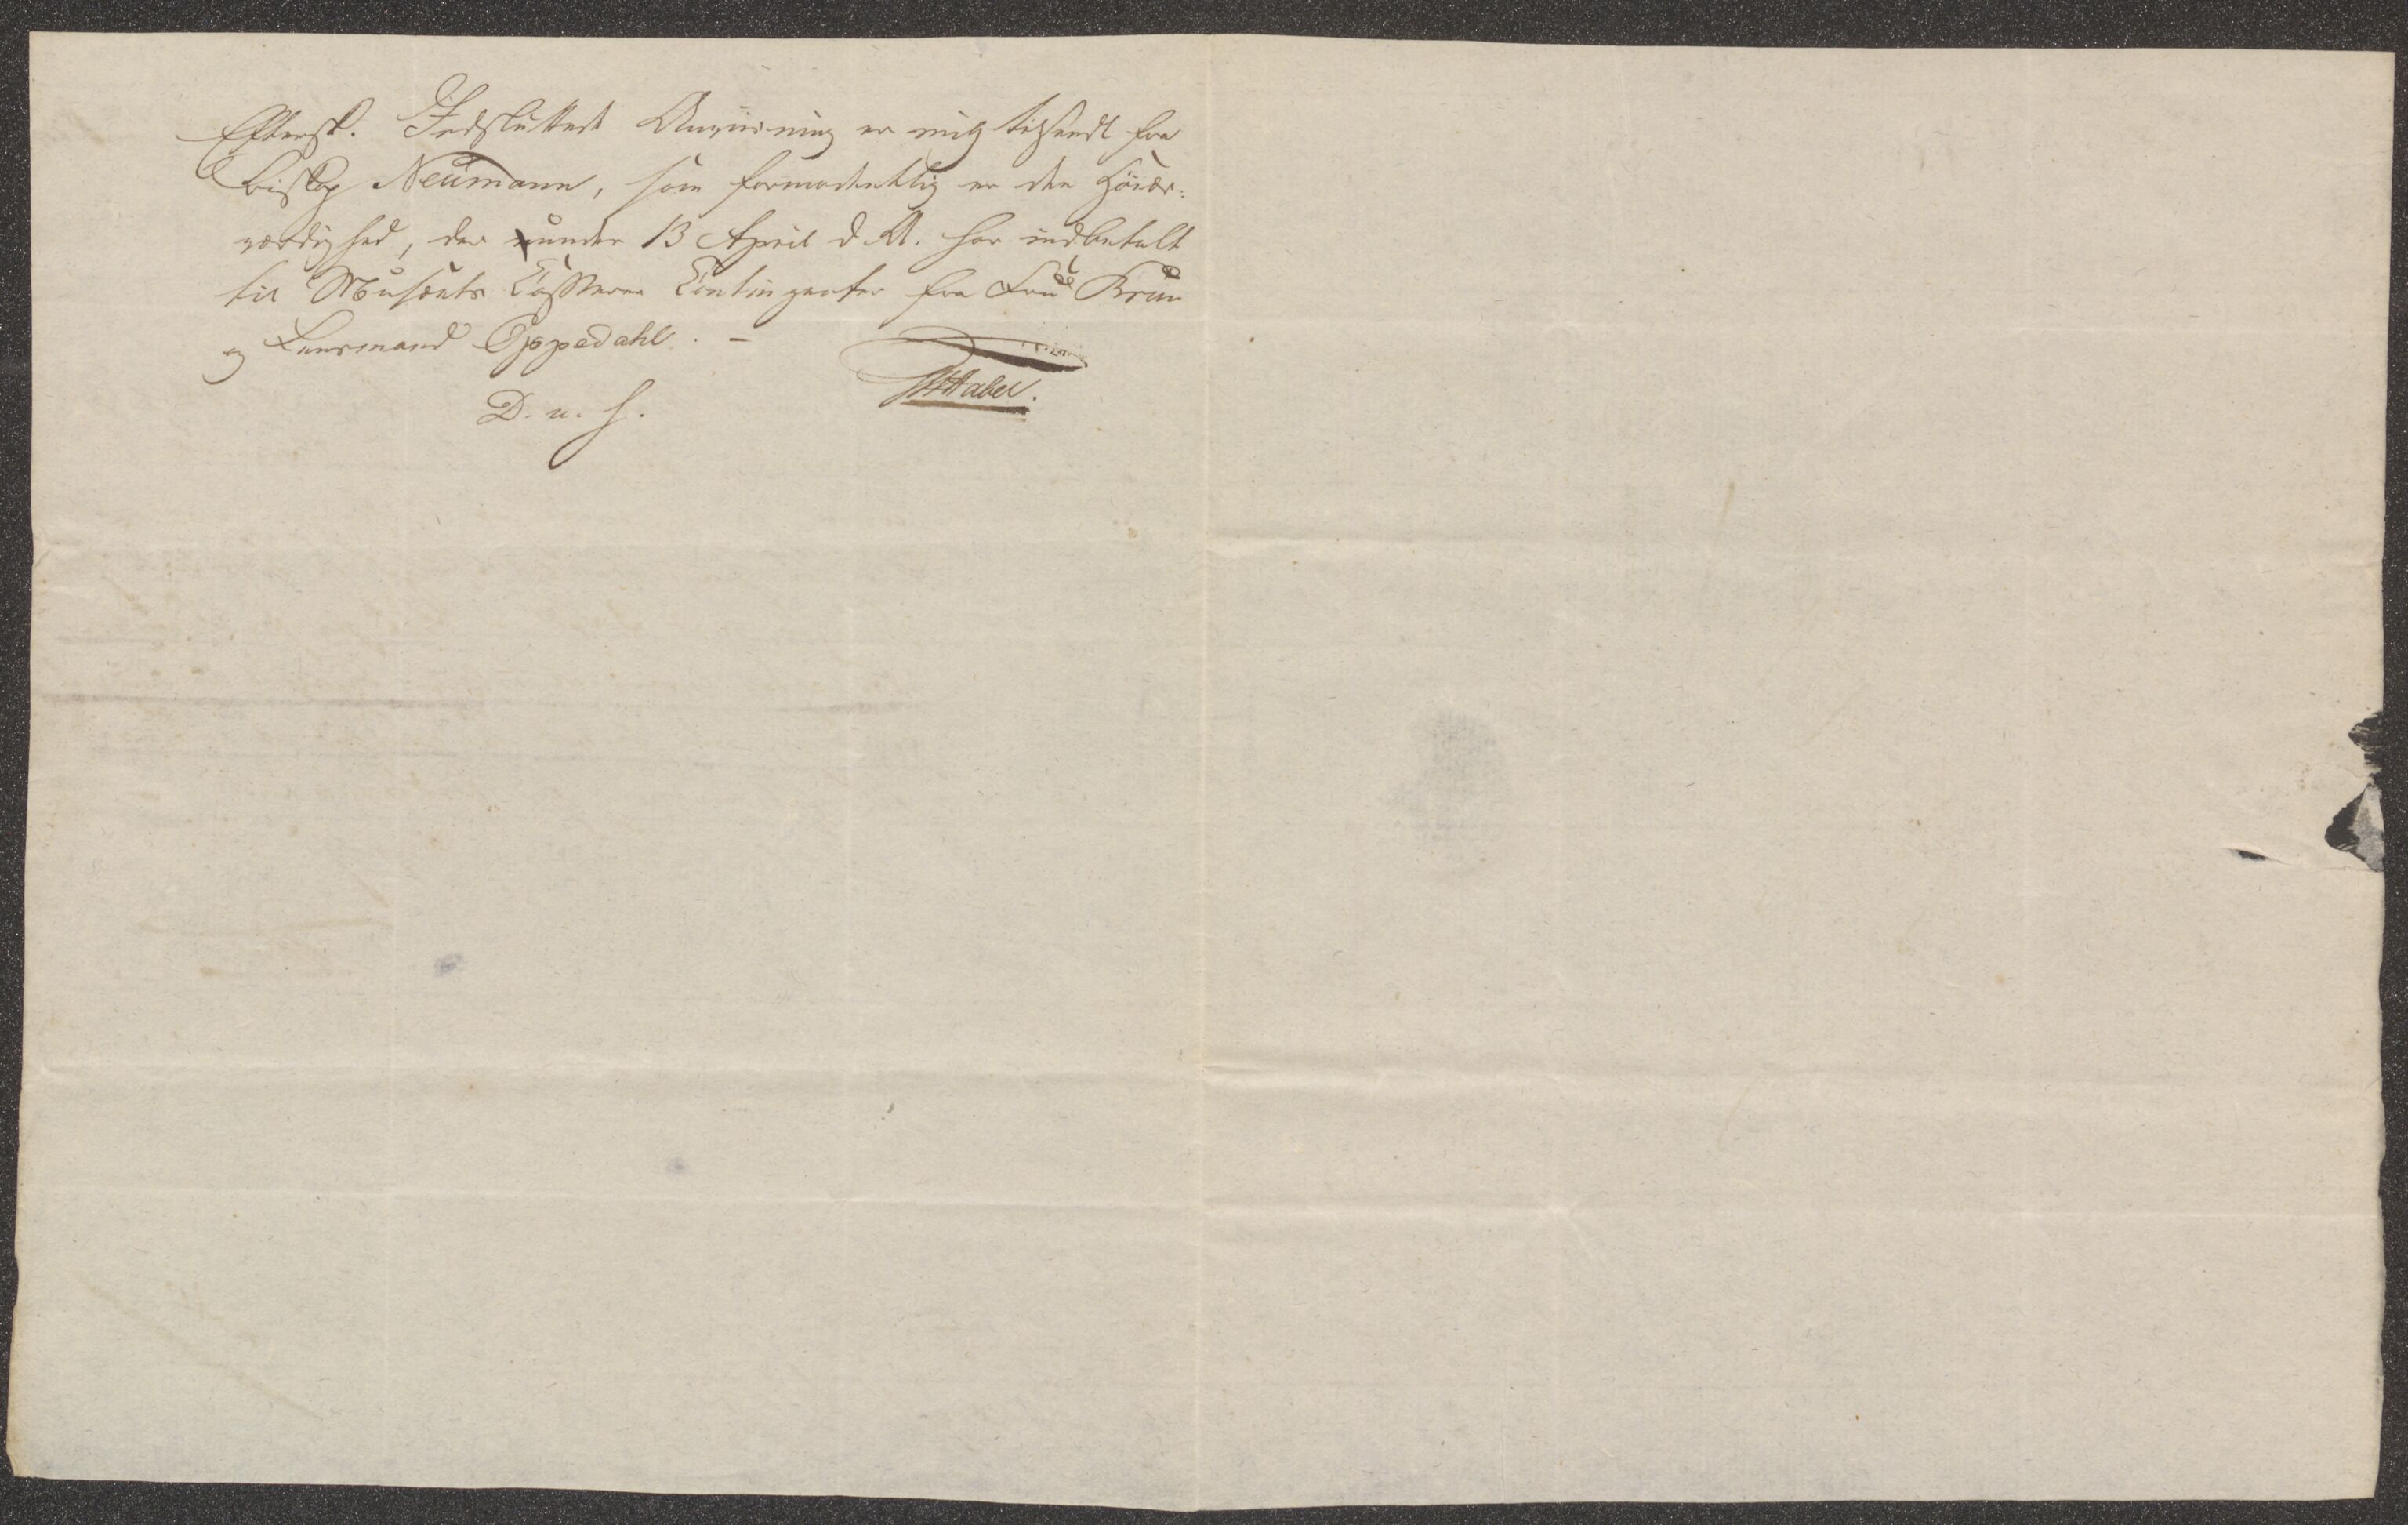 Eftersk. Indsluttet Anviisning er mig tilsendt fra
Biskop Neumann, som formodentlig er den Höiær:
værdighed, der under 13 April d. A. har indbetalt
til Musæets Casserer Contingenter fra Fru Krün
og Leensmand Oppedahl. -
D. u. S.